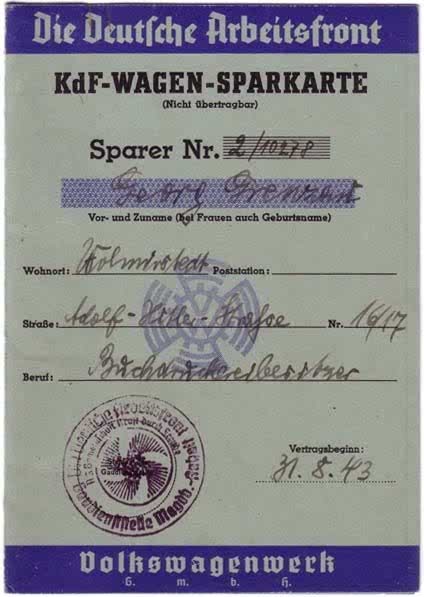 Die Deutsche Arbeitsfront
KdF-WAGEN-SPARKARTE
(Nicht übertragbar)
Sparer Nr. 2/10278
Georg
Vor- und Zuname (bei Frauen auch Geburtsname)
Wohnort: Wolmirstedt Poststation:
Straße: Adolf-Hitler-Straße Nr. 16/17
Beruf: Buchdruckereibesitzer
Vertragsbeginn:
31. 8. 43
Volkswagenwerk
G. m. b. H.